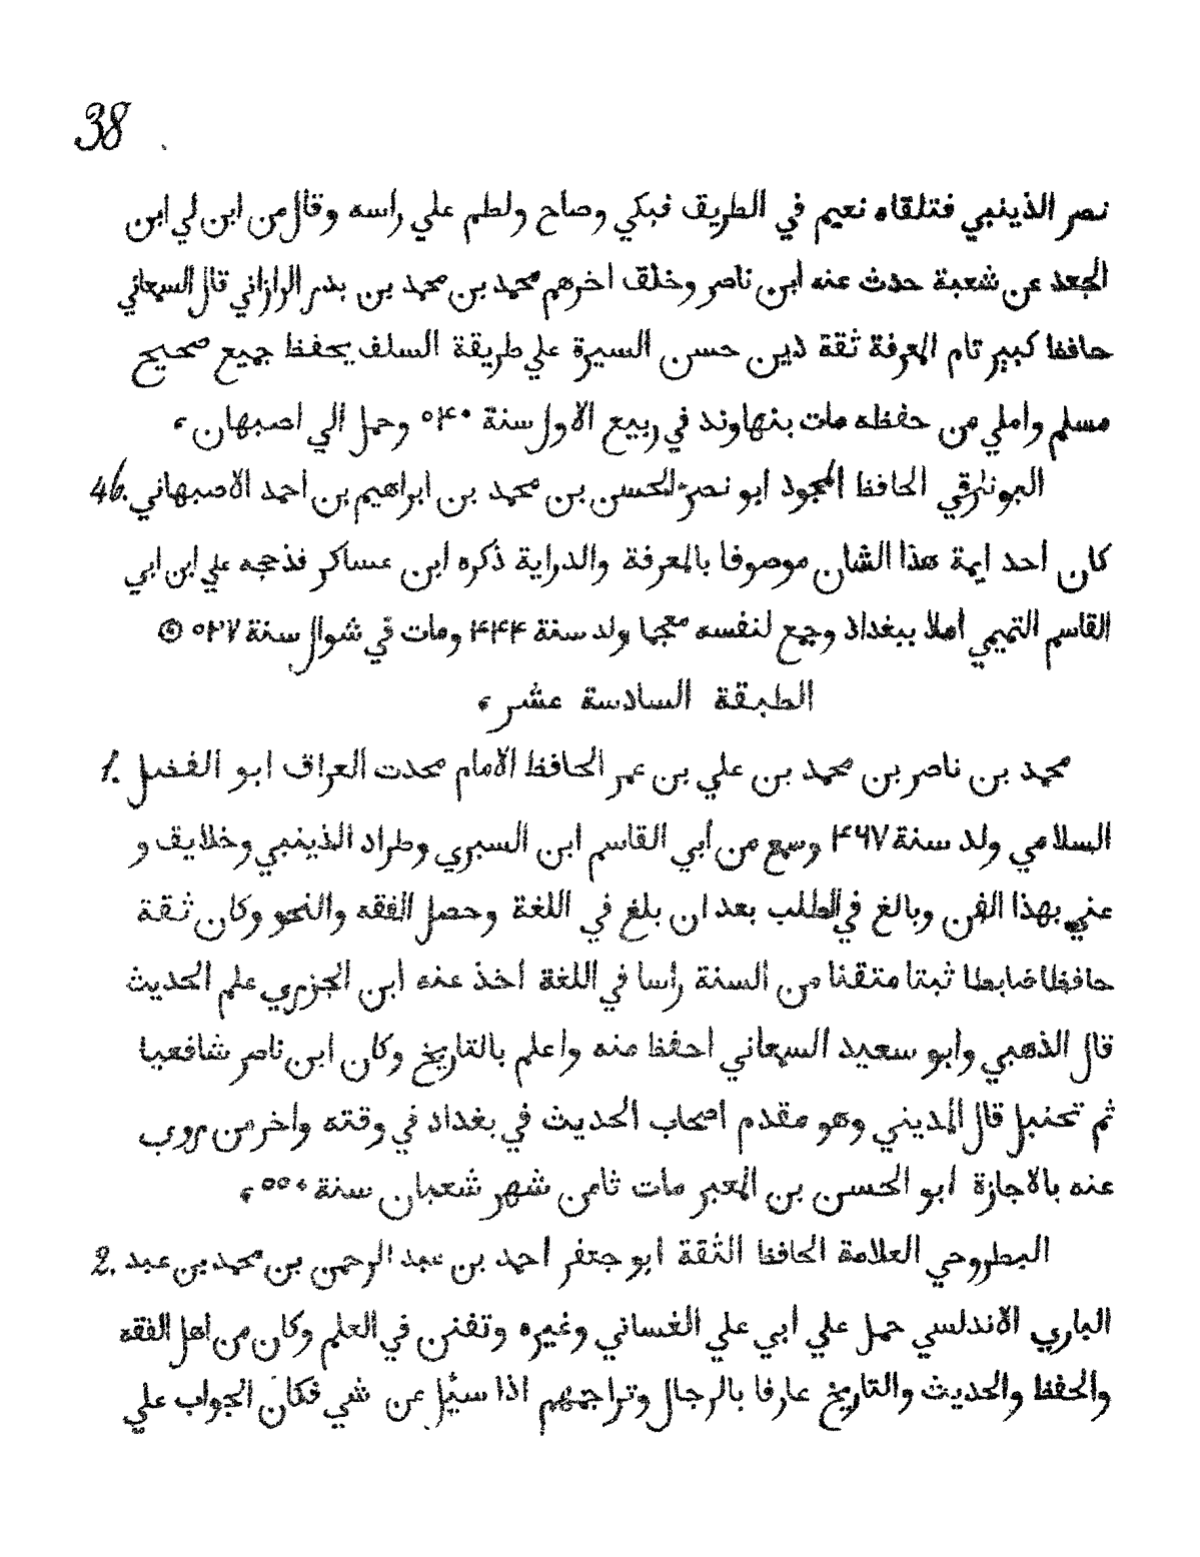 38
نصر الذينبي فتلقاه نعيم في الطريق فبكي وصاح ولطم علي راسه وقال من ابن لي ابن
الجعد عن شعبة حدث عنه ابن ناصر وخلق اخرهم محمد بن محمد بن بدر الرازاني قال السمعاني
حافظ كبير تام المعرفة ثقة دين حسن السيرة علي طريقة السلف يحفظ جميع صحيح
مسلم واملي من حفظه مات بنهاوند في ربيع الاول سنة ۵۴۰ وحمل الي اصبهان ،
46. اليونارقي الحافظ المجود ابو نصر الحسن بن محمد بن ابراهيم بن احمد الاصبهاني
كان احد ايمة هذا الشان موصوفا بالمعرفة والدراية ذكره ابن عساكر فذحجه علي ابن ابي
القاسم التميمي املا ببغداد وجمع لنفسه معجما ولد سنة ۴۴۴ ومات في شوال سنة ۵۲۷
الطبقة السادسة عشر ،
1. محمد بن ناصر بن محمد بن علي بن عمر الحافظ الامام محدث العراق ابو الفضل
السلامي ولد سنة ۴۶۷ وسمع من أبي القاسم ابن السبري وطراد الذينبي وخلايق و
عني بهذا الفن وبالغ في الطلب بعد ان بلغ في اللغة وحصل الفقه والنحو وكان ثقة
حافظا ضابطا ثبتا متقنا من السنة راسا في اللغة اخذ عنه ابن الجزري علم الحديث
قال الذهبي وابو سعيد السمعاني احفظ منه واعلم بالتاريخ وكان ابن ناصر شافعيا
ثم تحنبل قال المديني وهو مقدم اصحاب الحديث في بغداد في وقته واخر من روي
عنه بالاجازة ابو الحسن بن المعبر مات ثامن شهر شعبان سنة ۵۵۰ ،
2. البطروحي العلامة الحافظ الثقة ابو جعفر احمد بن عبد الرحمن بن محمد بن عبد
الباري الاندلسي حمل علي أبي علي الغساني وغيره وتفنن في العلم وكان من اهل الفقه
والحفظ والحديث والتاريخ عارفا بالرجال وتراجمهم اذا سئل عن شي فكان الجواب علي